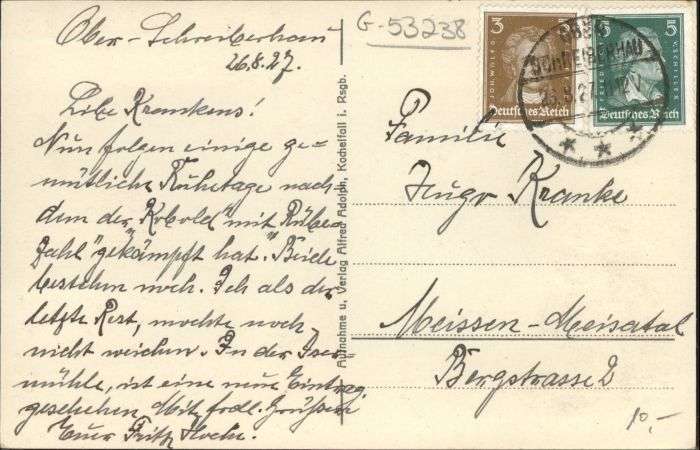 Ober-Schreiberhau
26.8.27.
Libe Krankens!
Nun folgen einige ge-
mütliche Ruhetage nach-
dem der „Kobold" mit „Rübe-
zahl" gekämpft hat. Beide
bestehen noch. Ich als der
letzte Rest, mochte noch
nicht weichen. In der Iser-
mühle, ist eine neue Eintrag.
geschehen Mit frdl. Grüssen
Euer Fritz
Aufnahme u. Verlag Alfred Adolph, Kochelfall i. Rsgb.
G-53238
3
JOH. WOLFG.
Deutsches Reich
5
V. SCHILLER
Deutsches Reich
OBER
SCHREIBERHAU
Familie
Hugo Kranke
Meissen-Meisatal
Bergstrasse 2
10,-